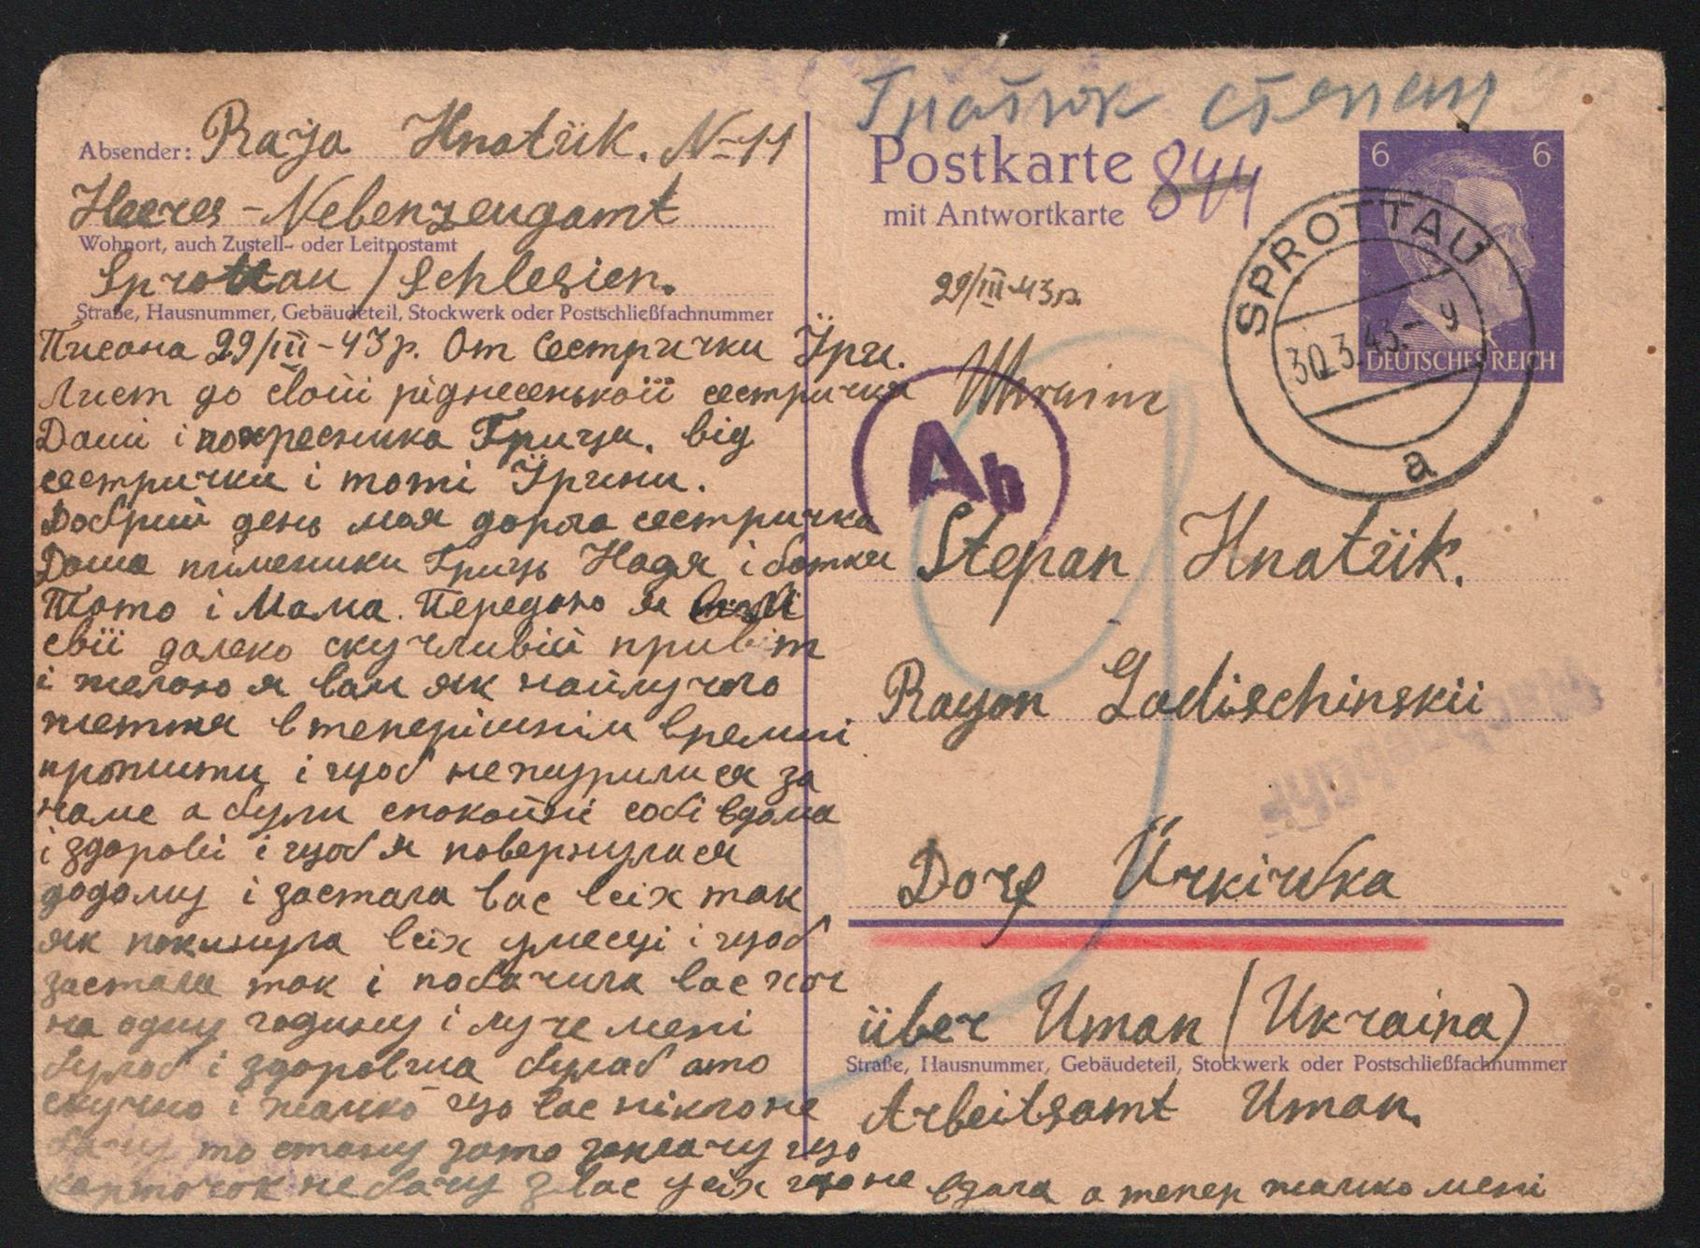 Absender: Raja Hnatük. N-11
Heeres-Nebenzeugamt
Wohnort, auch Zustell- oder Leitpostamt
Sprottau / Schlesien.
Straße, Hausnummer, Gebäudeteil, Stockwerk oder Postschließfachnummer
Писана 29/III-43р. От Сестрички Їри.
Лист до свої ріднесенької сестрички
Даші і похресника Гриця. від
сестрички і тоті Їрини.
Добрий день моя дорга сестричка
Даша племеники Гриць Надя і батки
Тато і Мама. Передаю я
свії далеко скучливій привіт
і желаю я вам як найлучого
життя в теперішнім времні
прожити і щоб нежурилися за
мене а були спокойні собі вдома
і здорові і щоб я повернулася
додому і застала вас всіх так
як покинула всіх умесці і щоб
застала так і побачила вас хоч
на одну годину і луче мені
булоб і здоровча булаб ато
скучно і жалко що вас ніколи не
бачу то стану зато заплачу що
карточок не бачу з вас усіх що не взяла а тепер жалко мені
Гнатюк Степан
Postkarte 844
mit Antwortkarte
29/III-43р.
6 6
DEUTSCHES REICH
SPROTTAU
30.3.43.-9
a
Ukraine
Ab
Stepan Hnatük.
Rayon Ladischinskii
Dorf Ürkiwka
über Uman (Ukraina)
Straße, Hausnummer, Gebäudeteil, Stockwerk oder Postschließfachnummer
Arbeitsamt Uman.